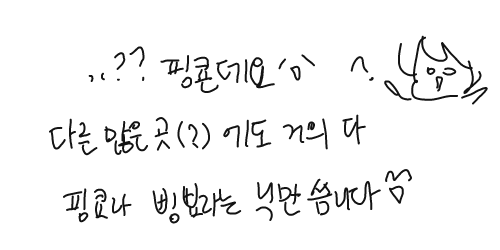 ,,?? 핑쿈데요 'ㅁ' ?.
다른 많은 곳(?) 에도 거의 다
핑쿄나 빙범라는 닉만 씁니다